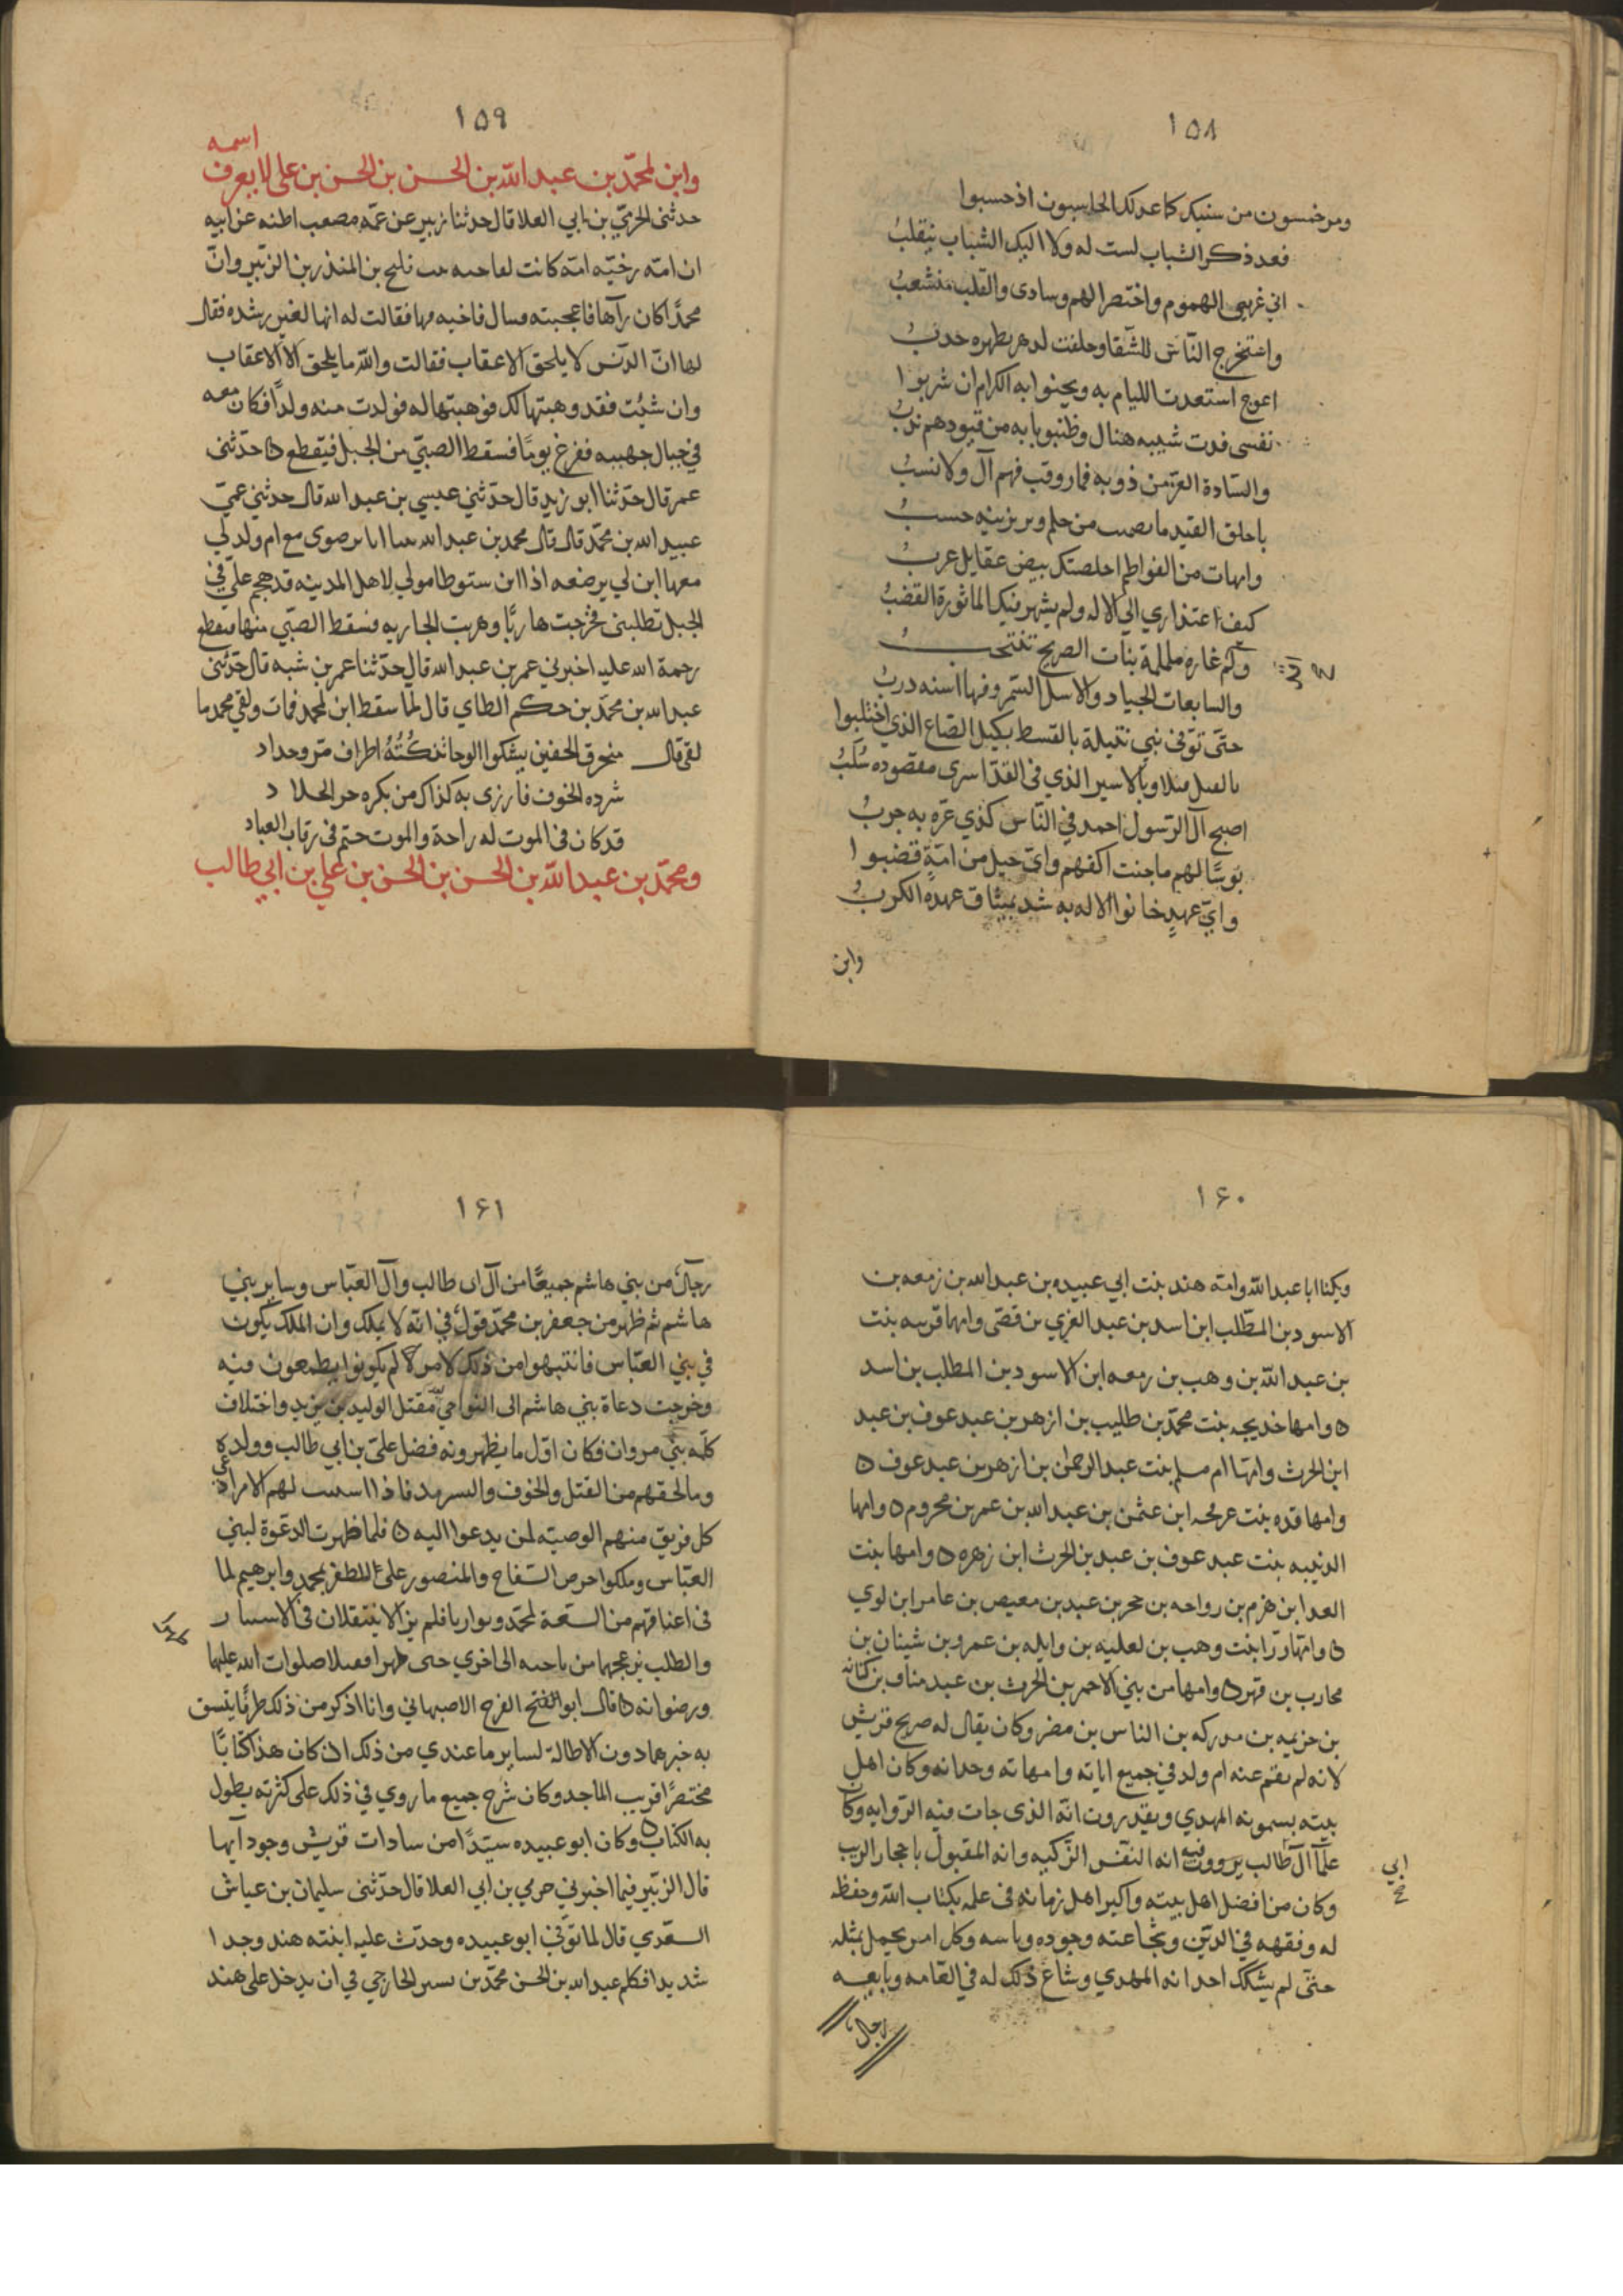 ١٥٨
ومرخمسون من سنيك كما عد لك الحاسبون اذ حسبوا
فعد ذكر الشباب لست له ولا اليك الشباب ينقلبُ
اني غرتهي الهموم واختصر الهم وسادى والقلب منشعبُ
واستخرج النّاس للشقا وخلفت لدهر بظهره حدبُ
اعوج استعدت الليام به ويحنوا به الكرام ان شربوا
نفسى فدت شيبه هنال وظنبوبا به من قيودهم ندبُ
والسّادة الغرّ من ذويه فما روقب فهم آل ولا نسبُ
ياحلق القيد ما من حلم وبر يزينه حسبُ
وامهات من الفواطم اخلصتك بيض عقايل عربُ
كيف اعتذاري الي الاله ولم يشهر فيك الماثورة القضبُ
وكم غاره ململمة بنات الصريح تنتحبُ
والسابعات الجياد والاسل السّمر وفها اسنه دربُ
حتّى توفى بني نتيلة بالقسط بكيل الصّاع الذي اختلبوا
بالقتل وبالاسير الذي فى القدّ اسرى مقصوده سُلَبُ
اصبح آل الرّسول احمد في النّاس كذي عرّه به جربُ
بوسًا لهم ما جنت اكفهم واىّ حبل من امّةٍ قضبوا
وايّ عهدٍ خانوا الاله به شد بميثاق عهده الكربُ
وابن
١٥٩
اسمه
وابن لمحمّد بن عبد اللّه بن الحسن بن الحسن بن على لا يعرف
حدثنى الحرميّ بن ابي العلا قال حدثنا زبير عن عمّه مصعب اظنه عن ابيه
ان امّه رخيّه امّه كانت فليح بن المنذر بن الزبير وانّ
محمدًا كان رآها فاعجبته فسال فاخبه مها فقالت له انها لغير رشده فقال
لها انّ الدّنس لا يلحق الاعقاب فقالت واللّه ما يلحق الّا الاعقاب
وان شئت فقد وهبتها لك فوهبتها له فولدت منه ولدًا فكان معه
في جبال جهينه ففزع يومًا فسقط الصبيّ من الجبل فيقطع ه حدّثنى
عمر قال حدّثنا ابو زيدٍ قال حدّثني عيسي بن عبد الله قال حدثني عمّي
عبيد الله بن محمّد قال قال محمد بن عبد الله بينا انا برضوى مع ام ولد لي
معها ابن لي يرضعه اذا ابن ستوطا مولي لاهل المدينه قد هجم علّي في
الجبل تطلبنى فخرجت هاربًا وهربت الجاريه فسقط الصبّي منها فتقطع
رحمة الله عليه اخبرني عمر بن عبد الله قال حدّثنا عمر بن شبه قال حدّثنى
عبد الله بن محمّد بن حكم الطاي قال لمّا سقط ابن لمحمد فمات ولقي محمد ما
لقى قال منحرق الخفين يشكوا الوجا تنكبُتُهُ اطراف مرّو حداد
شرده الخوف فارزى به كذاك من يكره حر الجلاد
قد كان فى الموت له راحة والموت حتم فى رقاب العباد
ومحمّد بن عبد اللّه بن الحسن بن الحسن بن علي بن ابي طالب
١۶٠
ويكنا ابا عبد اللّه وامّه هند بنت ابي عبيده بن عبد الله بن زمعه بن
الاسود بن المطّلب ابن اسد بن عبد العزي بن قصّى وامها قريبه بنت
بن عبد اللّه بن وهب بن زمعه ابن الاسود بن المطلب بن اسد
ه وامها خديجه بنت محمّد بن طليب بن ازهر بن عبد عوف بن عبد
ابن الحرث وامّها ام مسلم بنت عبد الرحمن بن ازهر بن عبد عوف ه
وامها قده بنت عرفجه ابن عثمن بن عبد الله بن عمر بن مخروم ه وامها
الدنيبه بنت عبد عوف بن عبد بن الحرث ابن زهره ه وامها بنت
العدا ابن هزم بن رواحه بن حجر بن عبد بن معيص بن عامر ابن لوي
ه وامّها رّرا بنت وهب بن لعليه بن وايله بن عمرو بن شيبان بن
محارب بن فهر ه وامها من بني الاحمر بن الحرث بن عبد مناف بن كنانه
بن خزيمه بن مدركه بن الناس بن مضر وكان يقال له صريح قريش
لانه لم يقم عنه ام ولد في جميع ابايه وامهاته وجداته وكان اهل
بيته يسمونه المهدي ويقدرون انّه الذى جات فيه الرّوايه وكان
علمآ آل طالب يروون فيه انه النفس الزّكيه وانه المقبول باحجار الزيت
ابي
صح
وكان من افضل اهل بيته واكبر اهل زمانه فى علمه بكتاب اللّه وحفظه
له وفقهه في الدّين وشجاعته وجوده وباسه وكل امر يجمل بمثله
حتّى لم يشكك احد انه المهدي وشاع ذلك له في العّامه وبايعه
رجال
١۶١
رجالٌ من بني هاشم جميعًا من آل ابى طالب وآل العبّاس وساير بني
هاشم ثم ظهر من جعفر بن محمّد قولٌ في انّه لا يملك وان الملك يكون
في بني العبّاس فانتبهوا من ذلك لامر لم يكونوا يطمعون فيه
وخرجت دعاة بني هاشم الى النواحي مقتل الوليد بن يزيد واختلاف
كلّمه بني مروان فكان اوّل ما يظهرونه فضل علىّ بن ابي طالب وولده
وما لحقهم من القتل والخوف والتسريد فاذا استتب لهم الامر ادّعى
كل فريق منهم الوصيّه لمن يدعوا اليه ه فلما ظهرت الدعّوة لبني
العبّاس وملكوا حرص السّفاح والمنصور على الظفر بمحمدٍ وابرهيم لما
فى اعناقهم من لمحمّد وتواريا فلم يزالا ينتقلان فى الاستتار
والطلب يزعجهما من ناحيه الى اخري حتى ظهرا فقتلا صلوات الله عليهما
ورضوانه ه قال ابو الفتح الفرج الاصبهاني وانا اذكر من ذلك طرفًا يتسق
به خبرهما دون الاطالة لساير ما عندي من ذلك اذ كان هذا كتابًا
مختصرًا قريب الماجد وكان شرح جميع ما روي في ذلك على كثرته يطول
به الكتاب ه وكان ابو عبيده سيّدًا من سادات قريش وجودآيها
قال الزّبير فيما اخبرني حرمي بن ابي العلا قال حدّثنى سليمان بن عياش
السعّدي قال لما توّفي ابو عبيده وحدث عليه ابنته هند وجدا
شديدا فكلم عبد الله بن الحسن محمّد بن بسير الخارجي في ان يدخل على هند